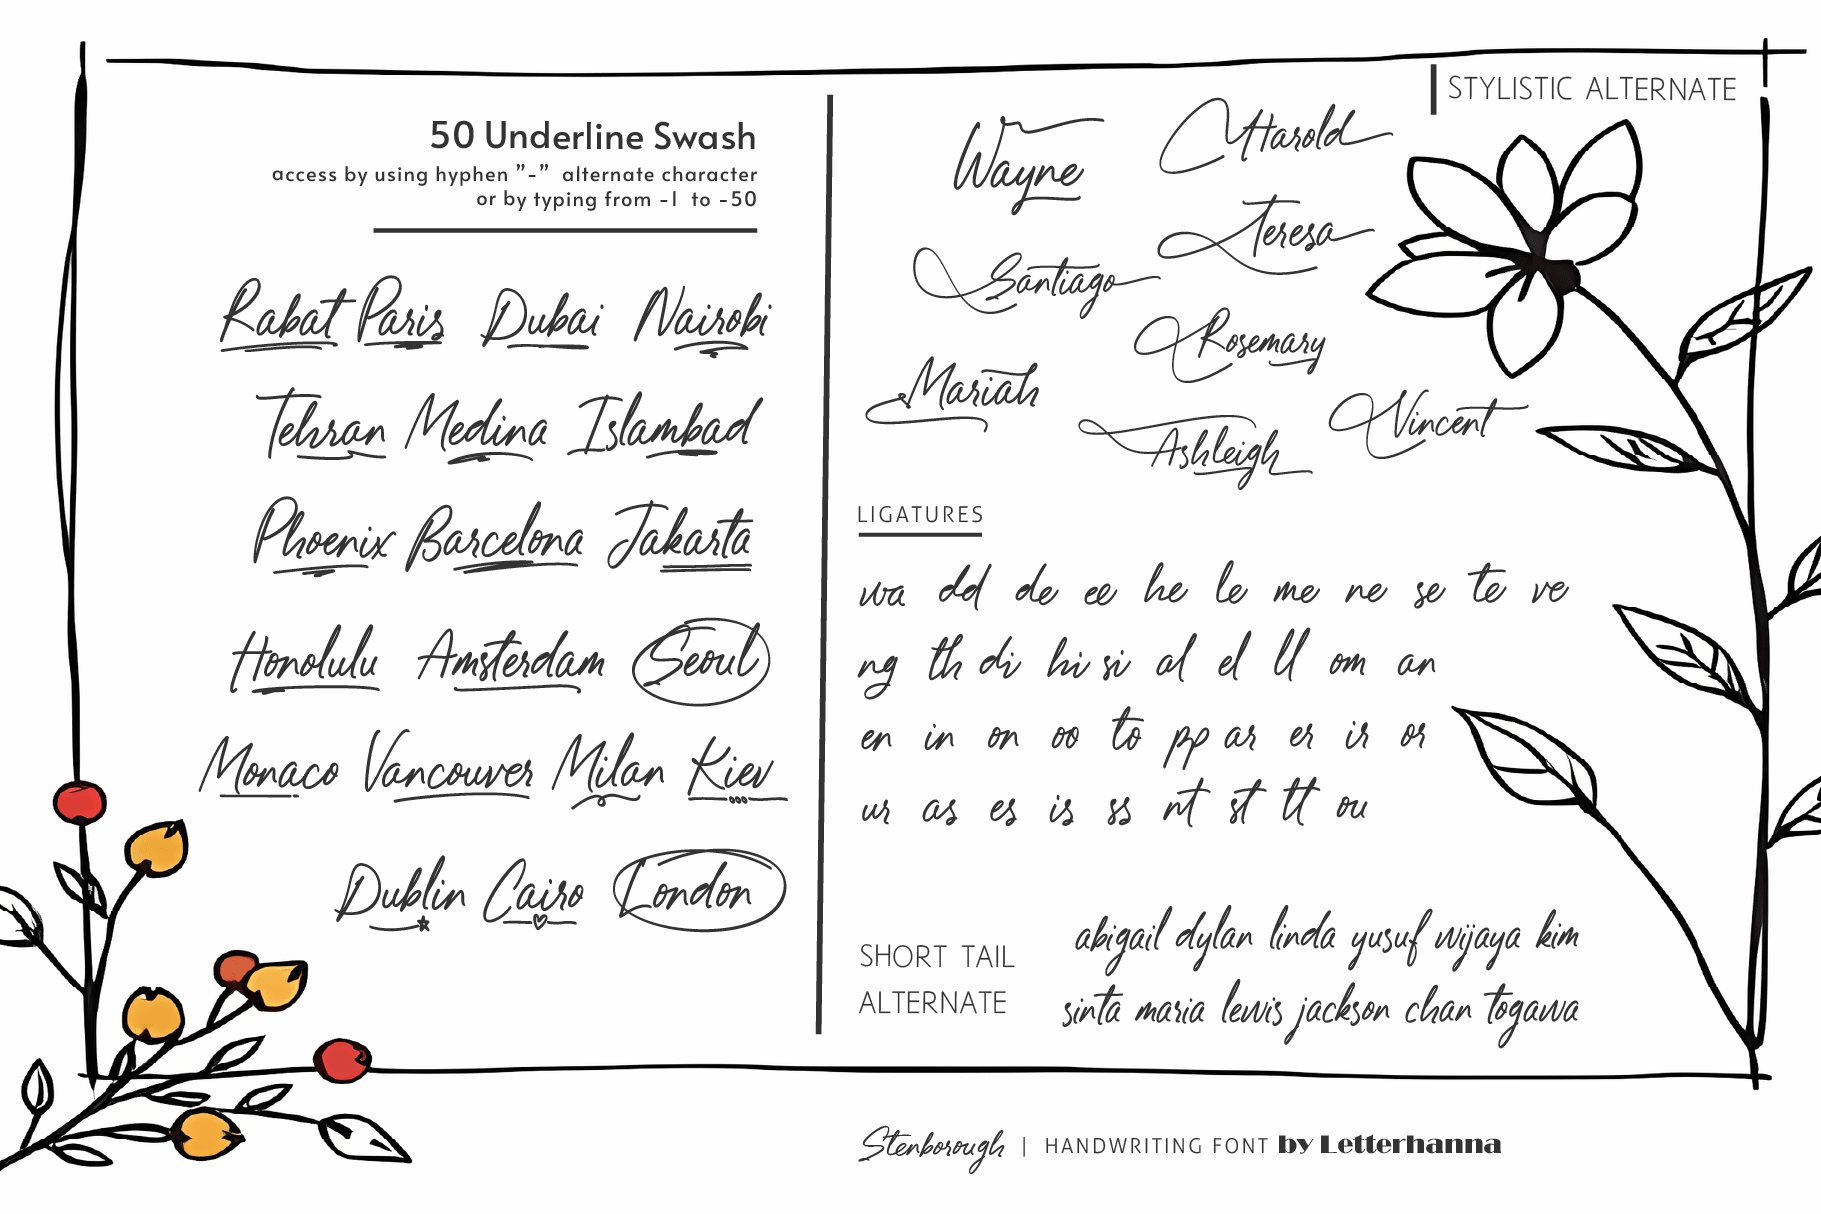 50 Underline Swash
access by using hyphen ”-” alternate character
or by typing from -1 to -50
Rabat Paris Dubai Nairobi
Tehran Medina Islambad
Phoenix Barcelona Jakarta
Honolulu Amsterdam Seoul
Monaco Vancouver Milan Kiev
Dublin Cairo London
STYLISTIC ALTERNATE
Wayne Harold
Teresa
Santiago
Rosemary
Mariah
Ashleigh Vincent
LIGATURES
wa dd de ee he le me ne se te ve
ng th di hi si al el ll om an
en in on oo to pp ar er ir or
ur as es is ss nt st tt ou
SHORT TAIL
ALTERNATE
abigail dylan linda yusuf wijaya kim
sinta maria lewis jackson chan togawa
Stenborough | HANDWRITING FONT by Letterhanna